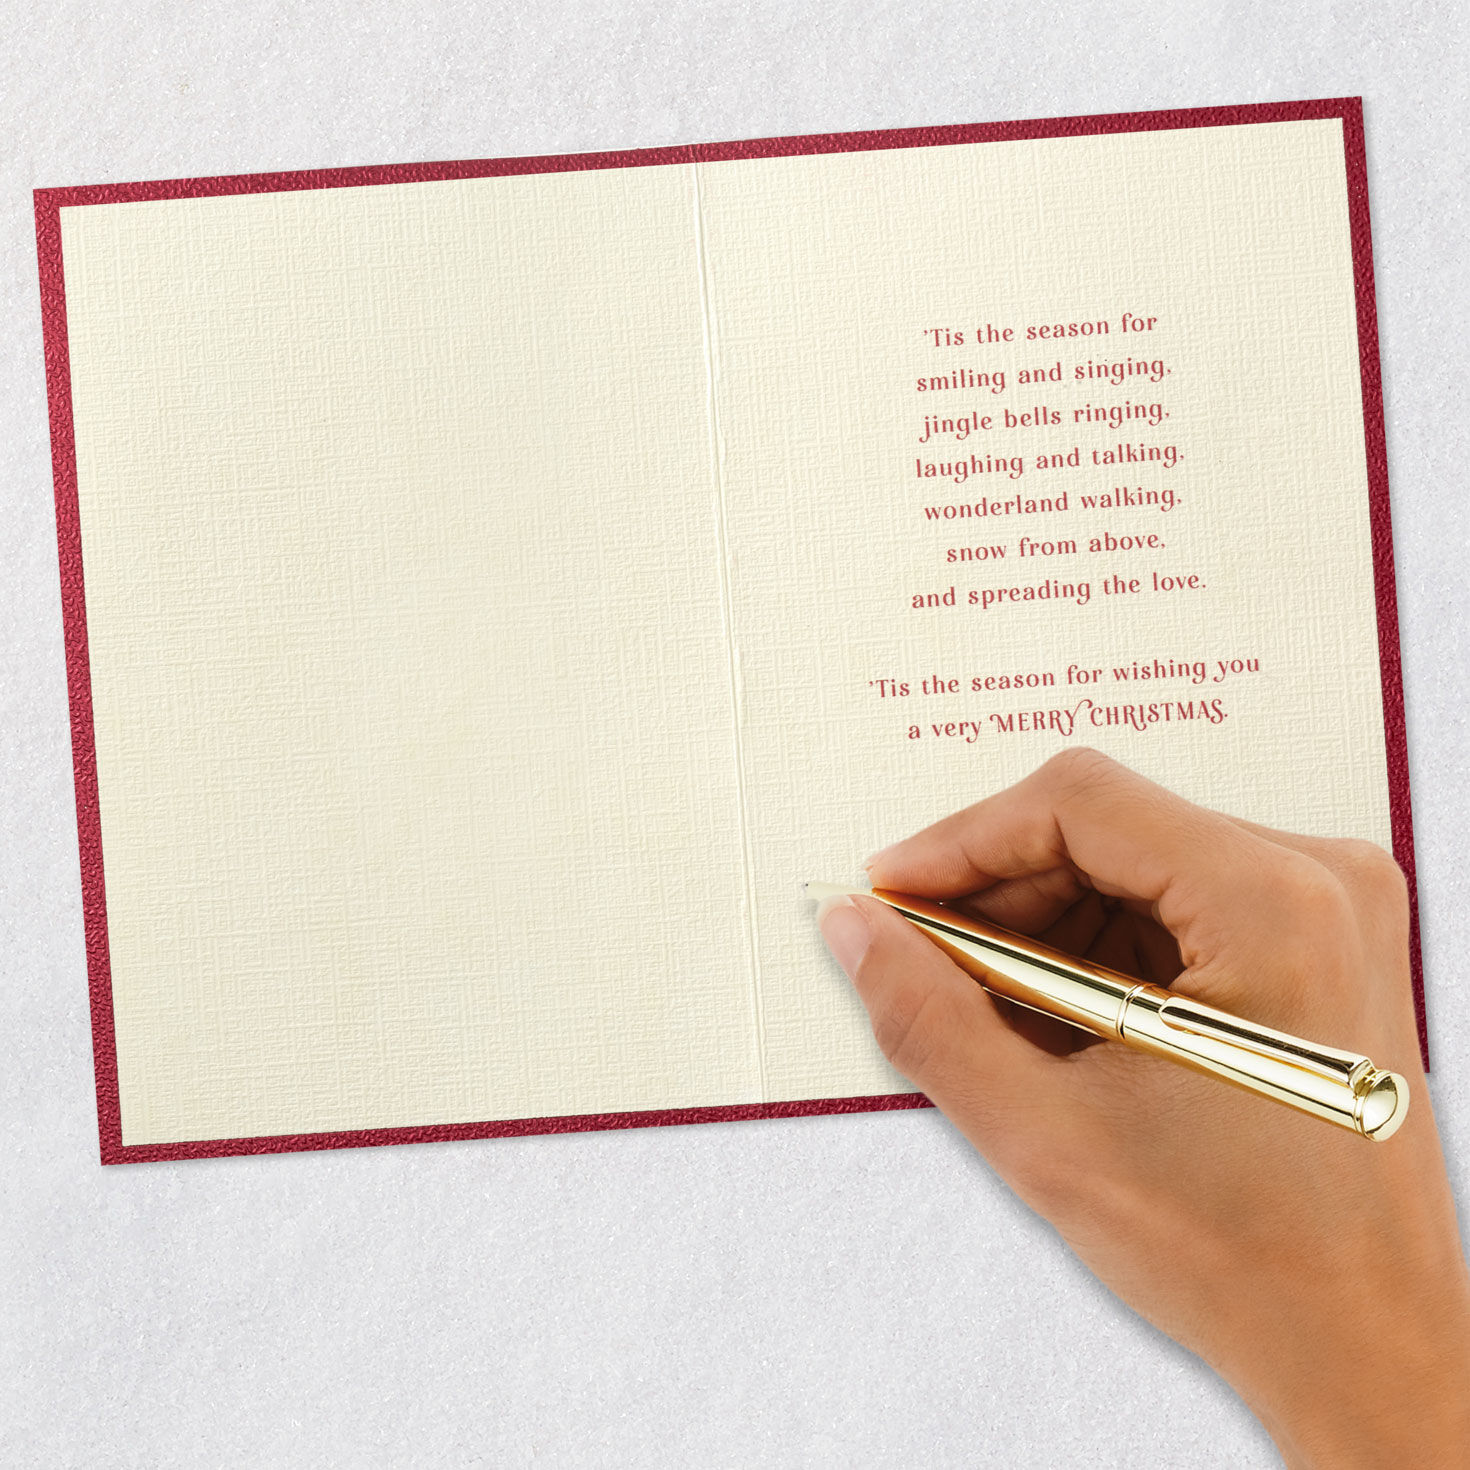 ’Tis the season for
smiling and singing,
jingle bells ringing,
laughing and talking,
wonderland walking,
snow from above,
and spreading the love.
’Tis the season for wishing you
a very MERRY CHRISTMAS.